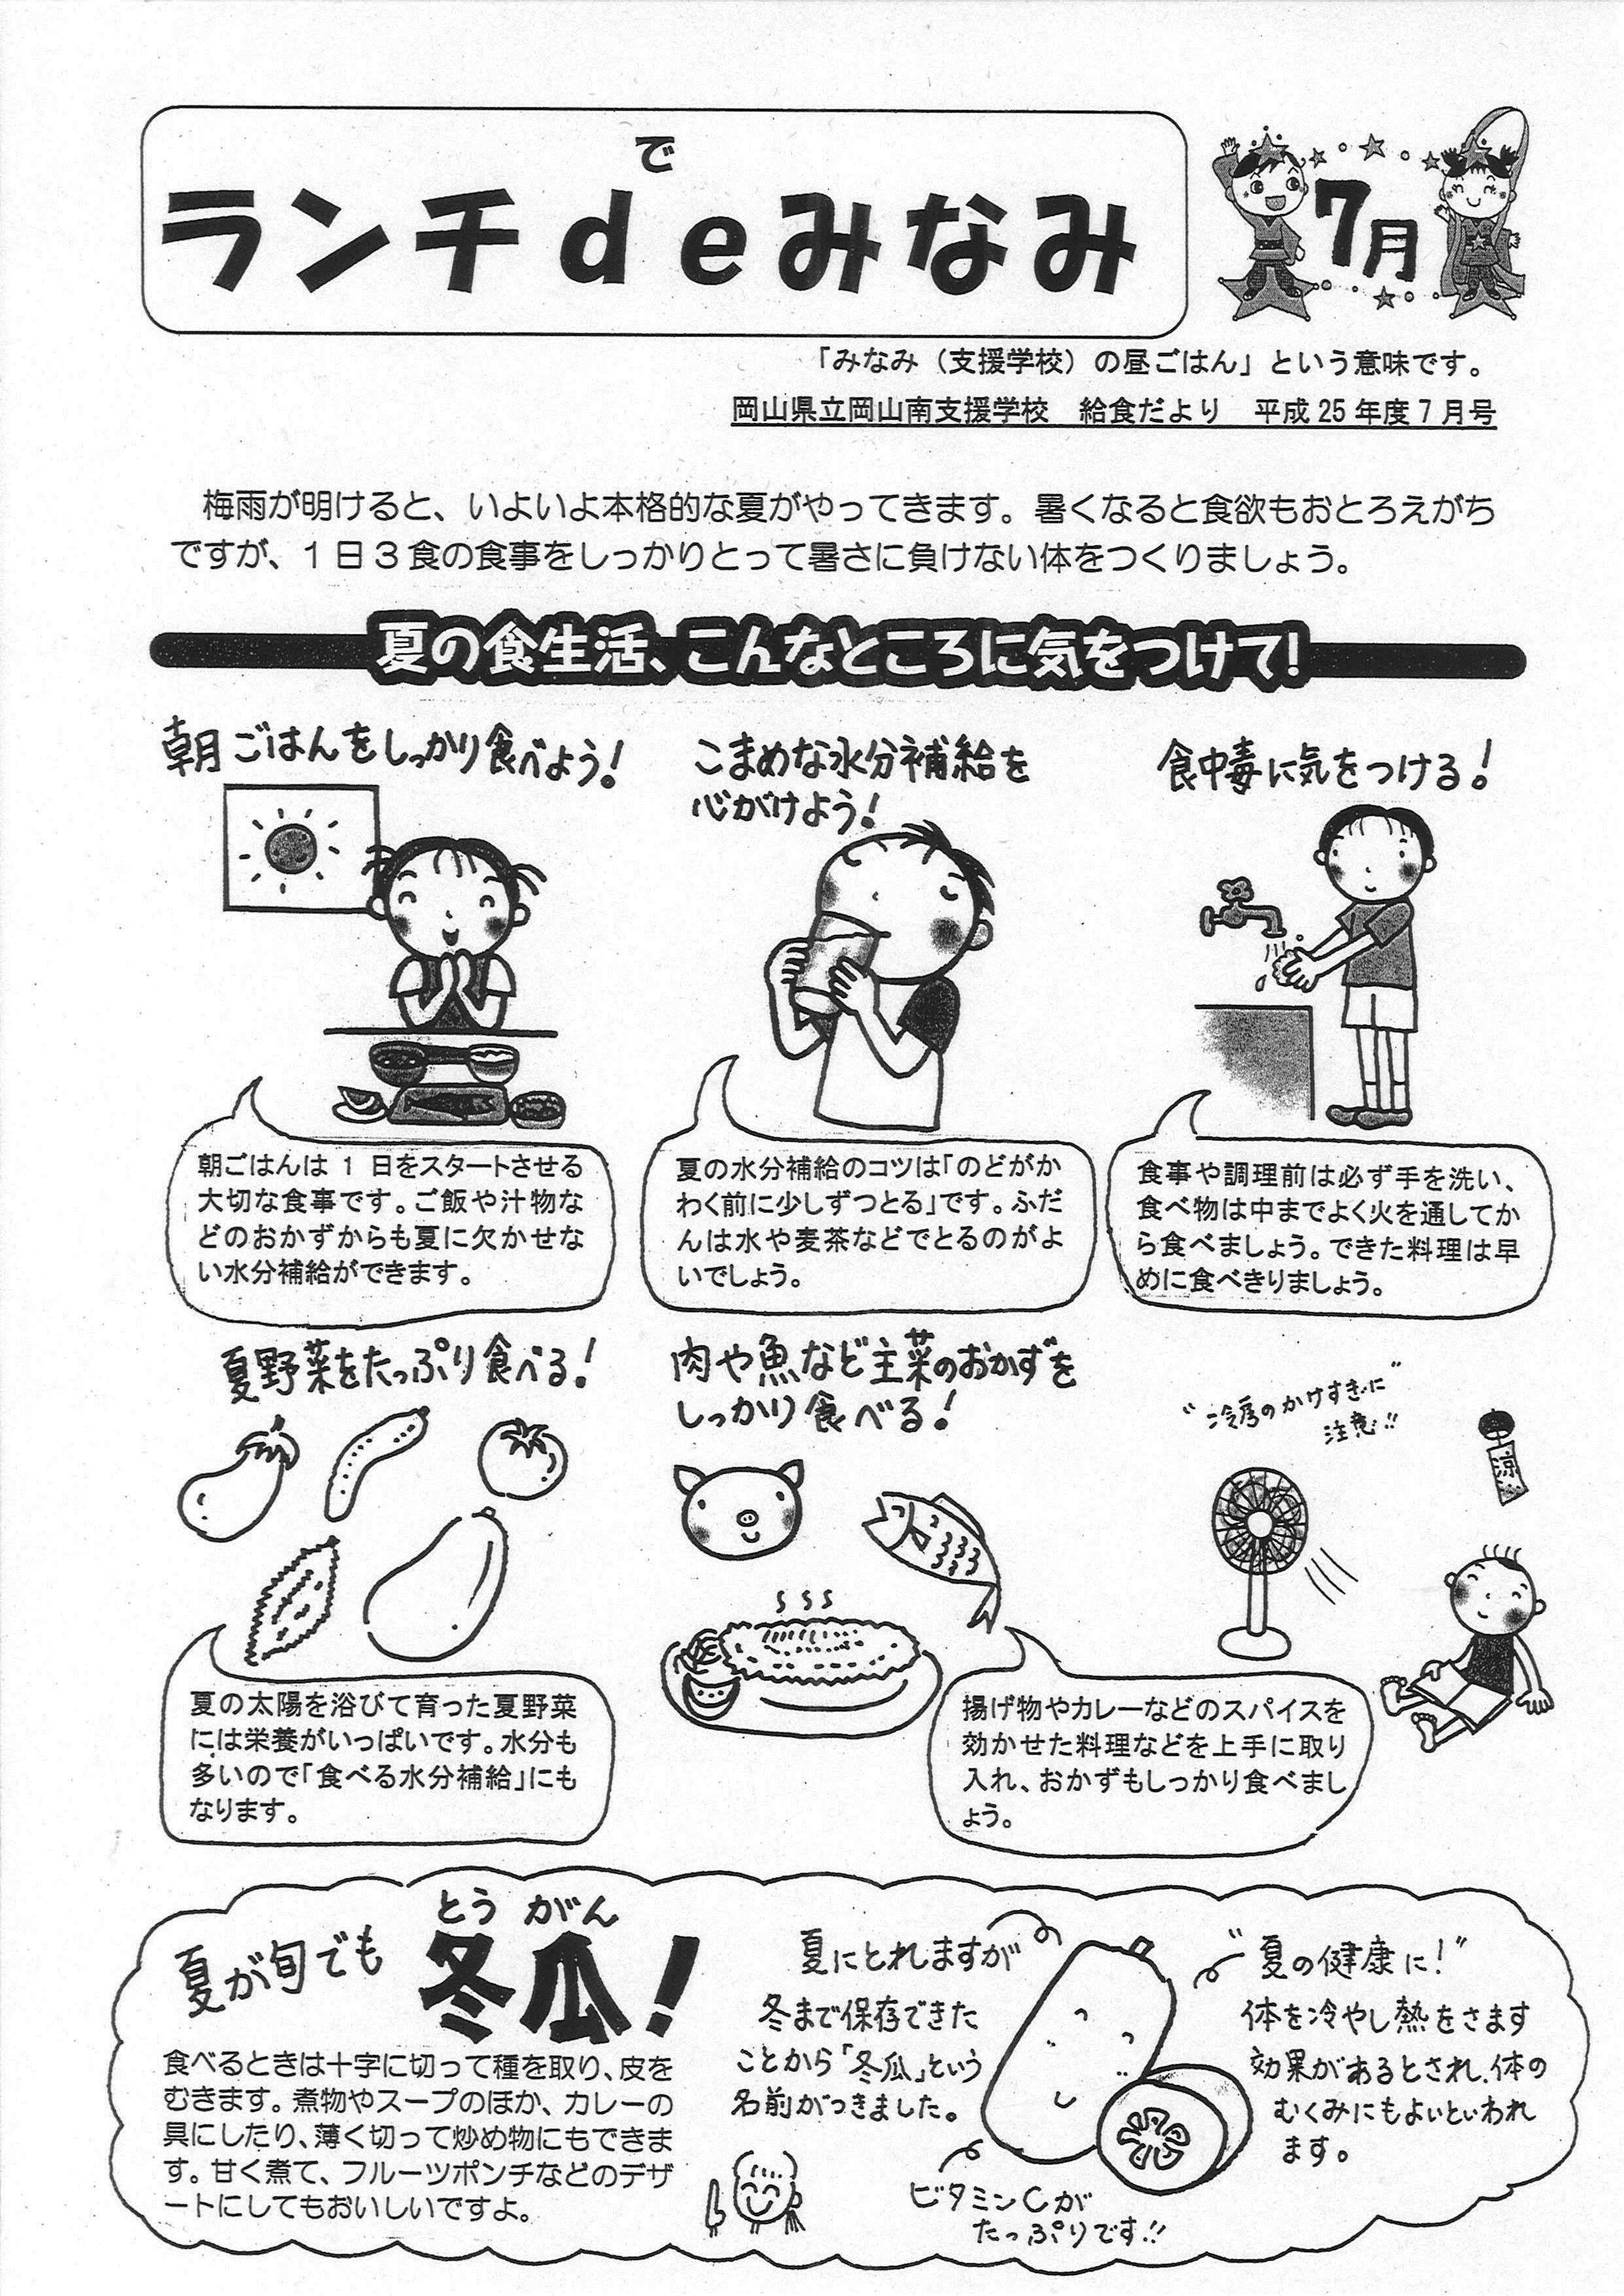 で
ランチdeみなみ
7月
「みなみ（支援学校）の昼ごはん」という意味です。
岡山県立岡山南支援学校　給食だより　平成25年度7月号
梅雨が明けると、いよいよ本格的な夏がやってきます。暑くなると食欲もおとろえがち
ですが、1日3食の食事をしっかりとって暑さに負けない体をつくりましょう。
夏の食生活、こんなところに気をつけて!
朝ごはんをしっかり食べよう!
朝ごはんは1日をスタートさせる
大切な食事です。ご飯や汁物な
どのおかずからも夏に欠かせな
い水分補給ができます。
こまめな水分補給を
心がけよう!
夏の水分補給のコツは「のどがか
わく前に少しずつとる」です。ふだ
んは水や麦茶などでとるのがよ
いでしょう。
食中毒に気をつける!
食事や調理前は必ず手を洗い、
食べ物は中までよく火を通してか
ら食べましょう。できた料理は早
めに食べきりましょう。
夏野菜をたっぷり食べる!
夏の太陽を浴びて育った夏野菜
には栄養がいっぱいです。水分も
多いので「食べる水分補給」にも
なります。
肉や魚など主菜のおかずを
しっかり食べる!
揚げ物やカレーなどのスパイスを
効かせた料理などを上手に取り
入れ、おかずもしっかり食べまし
ょう。
"冷房のかけすぎに"
注意!!
涼
夏が旬でも
とうがん
冬瓜!
食べるときは十字に切って種を取り、皮を
むきます。煮物やスープのほか、カレーの
具にしたり、薄く切って炒め物にもできま
す。甘く煮て、フルーツポンチなどのデザ
ートにしてもおいしいですよ。
夏にとれますが
冬まで保存できた
ことから「冬瓜」という
名前がつきました。
ビタミンCが
たっぷりです!!
"夏の健康に!"
体を冷やし熱をさます
効果があるとされ、体の
むくみにもよいといわれ
ます。